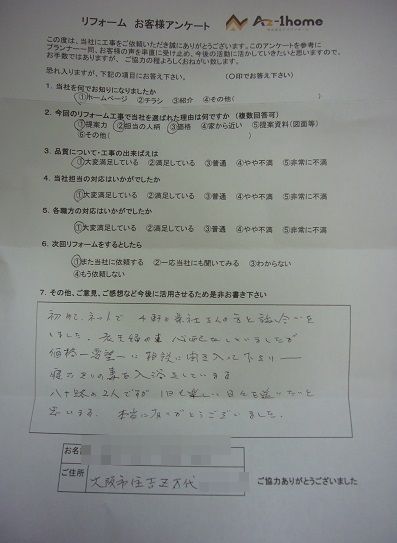 リフォーム お客様アンケート
Az-1home
この度は、当社に工事をご依頼いただき誠にありがとうございます。このアンケートを参考に
プランナー一同、お客様の声を率直に受け止め、今後の活動に活かしていきたいと思いますので、
お手数ではありますが、ご協力の程よろしくおねがい致します。
恐れ入りますが、下記の項目にお答え下さい。 (○印でお答え下さい)
1. 当社を何でお知りになりましたか
①ホームページ ②チラシ ③紹介 ④その他( )
2. 今回のリフォーム工事で当社を選ばれた理由は何ですか(複数回答可)
①提案力 ②担当の人柄 ③価格 ④家から近い ⑤提案資料(図面等)
⑥その他( )
3. 品質について・工事の出来ばえは
①大変満足している ②満足している ③普通 ④やや不満 ⑤非常に不満
4. 当社担当の対応はいかがでしたか
①大変満足している ②満足している ③普通 ④やや不満 ⑤非常に不満
5. 各職方の対応はいかがでしたか
①大変満足している ②満足している ③普通 ④やや不満 ⑤非常に不満
6. 次回リフォームをするとしたら
①また当社に依頼する ②一応当社にも聞いてみる ③わからない
④もう依頼しない
7. その他、ご意見、ご感想など今後に活用させるため是非お書き下さい
初めて、ネットで 4軒の会社さんの方と話合いを
しました。
価格 一番 に相談に聞き入って下さり
妻を入浴をしている
八十歳の2人ですが 1日も楽しい日々を送りたいと
思います。 本当にありがとうございました。
お名
ご住所 大阪市住吉区万代
ご協力ありがとうございました